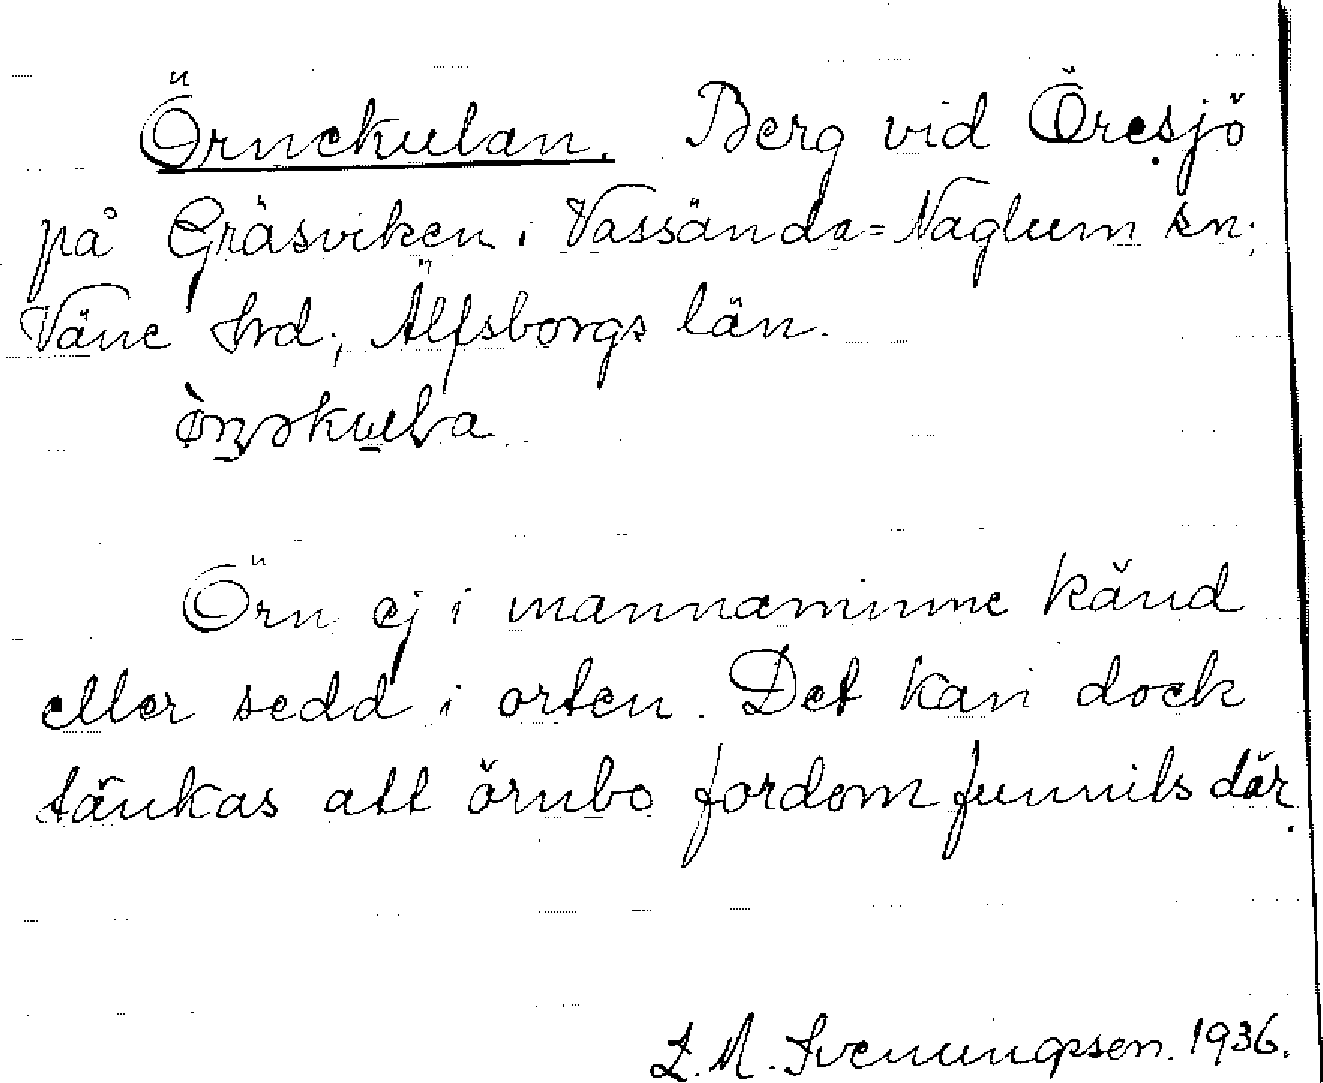 Örnekulan. Berg vid Öresjö
på Gräsviken i Vassända-Naglum sn;
Väne hrd; Älfsborgs län.
Örn ej i mannaminne känd
eller sedd i orten. Det kan dock
tänkas att örnbo fordom funnits där.
L. M. Svenungsson. 1936.